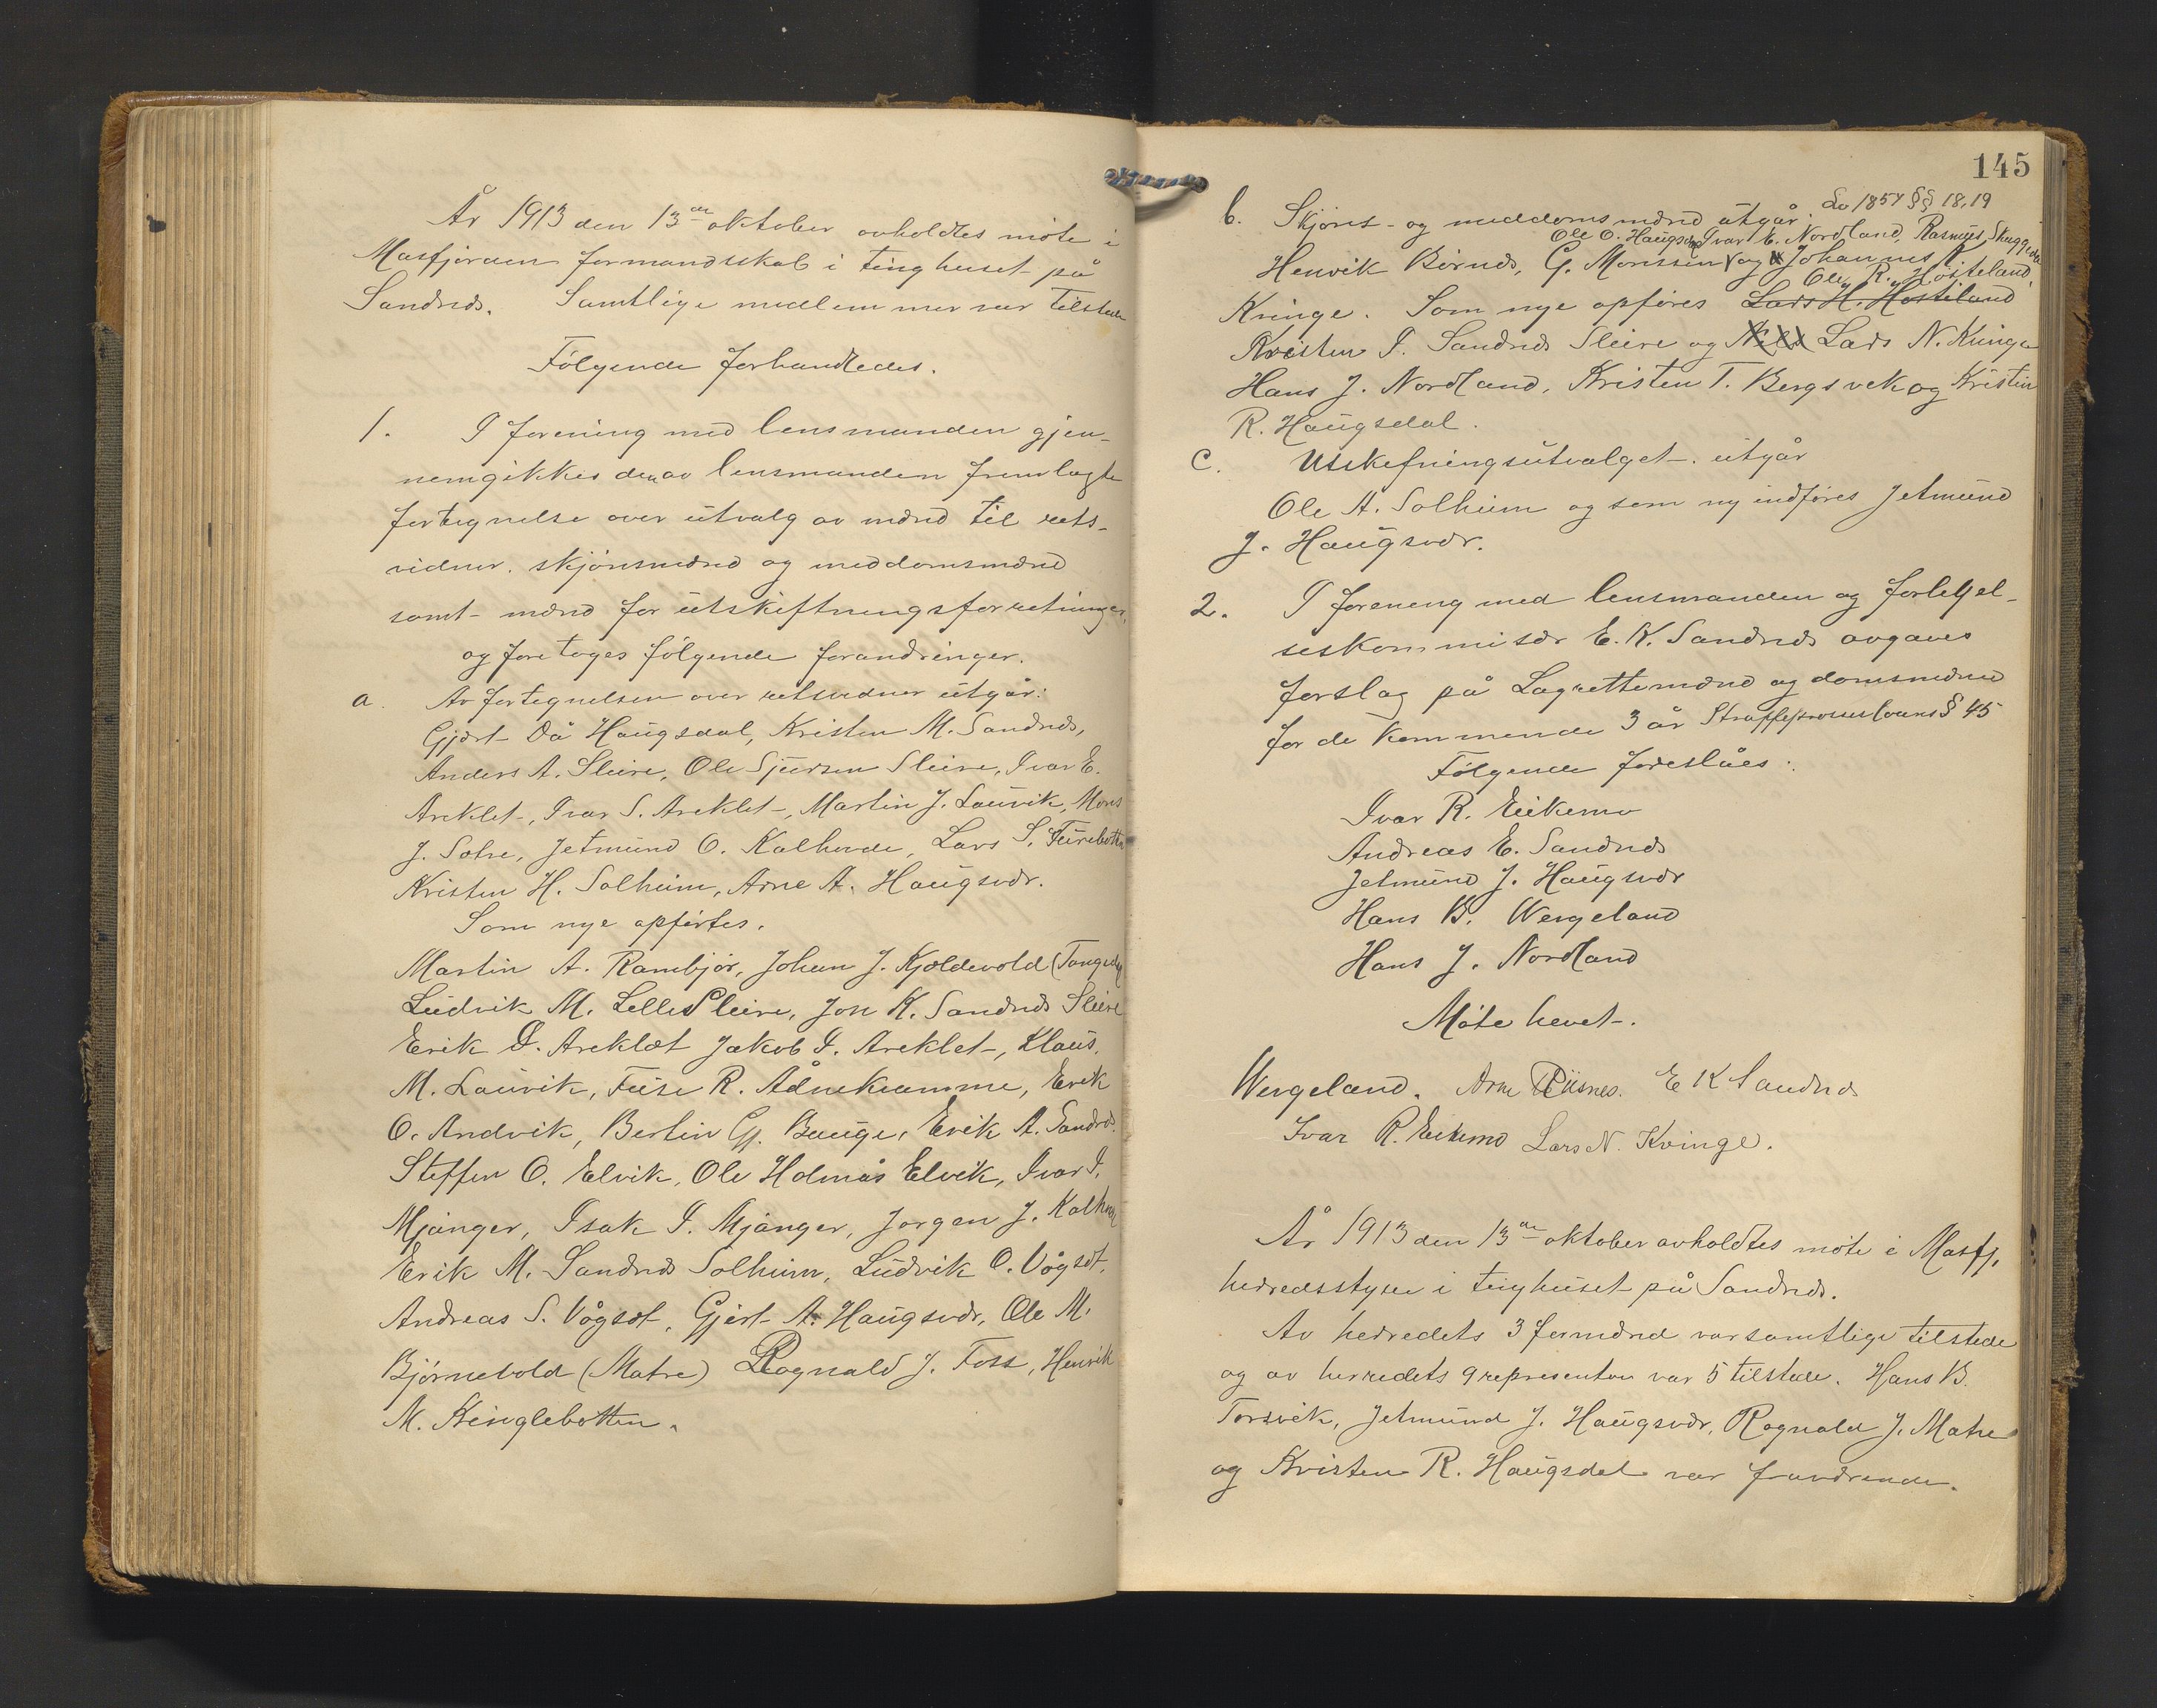 År 1913 den 13de oktober avholdtes møte i
Masfjorden formandsskab i tinghuset på
Sandnæs. Samtlige medlemmer var tilstede
Følgende forhandledes.
1. I forening med lensmanden gjen-
nemgikkes den av lensmanden fremlagte
fortegnelse over utvalg av mænd til rets-
vidner, skjønsmænd og meddomsmænd
samt mænd for utskiftningsforretninger,
og foretoges følgende forandringer.
a. Av fortegnelsen over retsvidner utgår:
Gjert Då Haugsdal, Kristen M. Sandnæs,
Anders A. Sleire, Ole Sjursen Sleire, Ivar E.
Areklet, Ivar S. Areklet, Martin J. Lauvik, Mons
J. Solre, Jetmund O. Kalhovde, Lars S. Furebotten
Kristen H. Solheim, Arne A. Haugsvær.
Som nye opførtes.
Martin A. Rambjør, Johan J. Kjeldevold (Tangedal
Ludvik M. Lille Sleire, Jon K. Sandnæs Sleire
Erik O. Areklet Jakob I. Areklet, Klaus
M. Lauvik, Fuse R. Ådnekvamme, Erik
O. Andvik, Bertin Gj. Bauge, Erik A. Sandnæs
Steffen O. Elvik, Ole Holmås Elvik, Ivar I.
Mjanger, Isak I. Mjanger, Jørgen J. Kalhovde
Erik M. Sandnæs Solheim, Ludvik O. Vågsæt,
Andreas S. Vågsæt, Gjert A. Haugsvær, Ole M.
Bjørnevold (Matre) Ragnald J. Foss, Henrik
M. Kringlebotten.
145
b. Skjøns- og meddomsmænd utgår: Lov 1857 §§ 18, 19
Ole O. Haugsdal Ivar E. Nordland, Rasmus Skuggedal
Henrik Birnæs, G. Monssen og Johannes A
Ole R. Høsteland,
Kvinge. Som nye opføres Lars H. Hosteland
Kristen I. Sandnæs Sleire og Nils Lars N. Kvinge
Hans J. Nordland, Kristen T. Bergsvik og Kristen
R. Haugsdal.
c. Utskiftningsutvalget. utgår
Ole A. Solheim og som ny indføres Jetmund
J. Haugsvær.
2. I forening med lensmanden og forligel-
seskommisær E. K. Sandnæs avgaves
forslag på Lagrettemænd og domsmænd
for de kommende 3 år Straffeproceslovens § 45
Følgende foreslåes:
Ivar R. Eikemo
Andreas E. Sandnæs
Jetmund J. Haugsvær
Hans B. Wergeland
Hans J. Nordland
Møte hevet.
Wergeland. Arne Riisnes. E K Sandnæs
Ivar R. Eikemo Lars N. Kvinge.
År 1913 den 13de oktober avholdtes møte i Masfj.
herredsstyre i tinghuset på Sandnæs.
Av herredets 3 formænd var samtlige tilstede
og av herredets 9 representan var 5 tilstede. Hans B.
Torsvik, Jetmund J. Haugsvær, Ragnald J. Matre
og Kristen R. Haugsdal var fraværende.